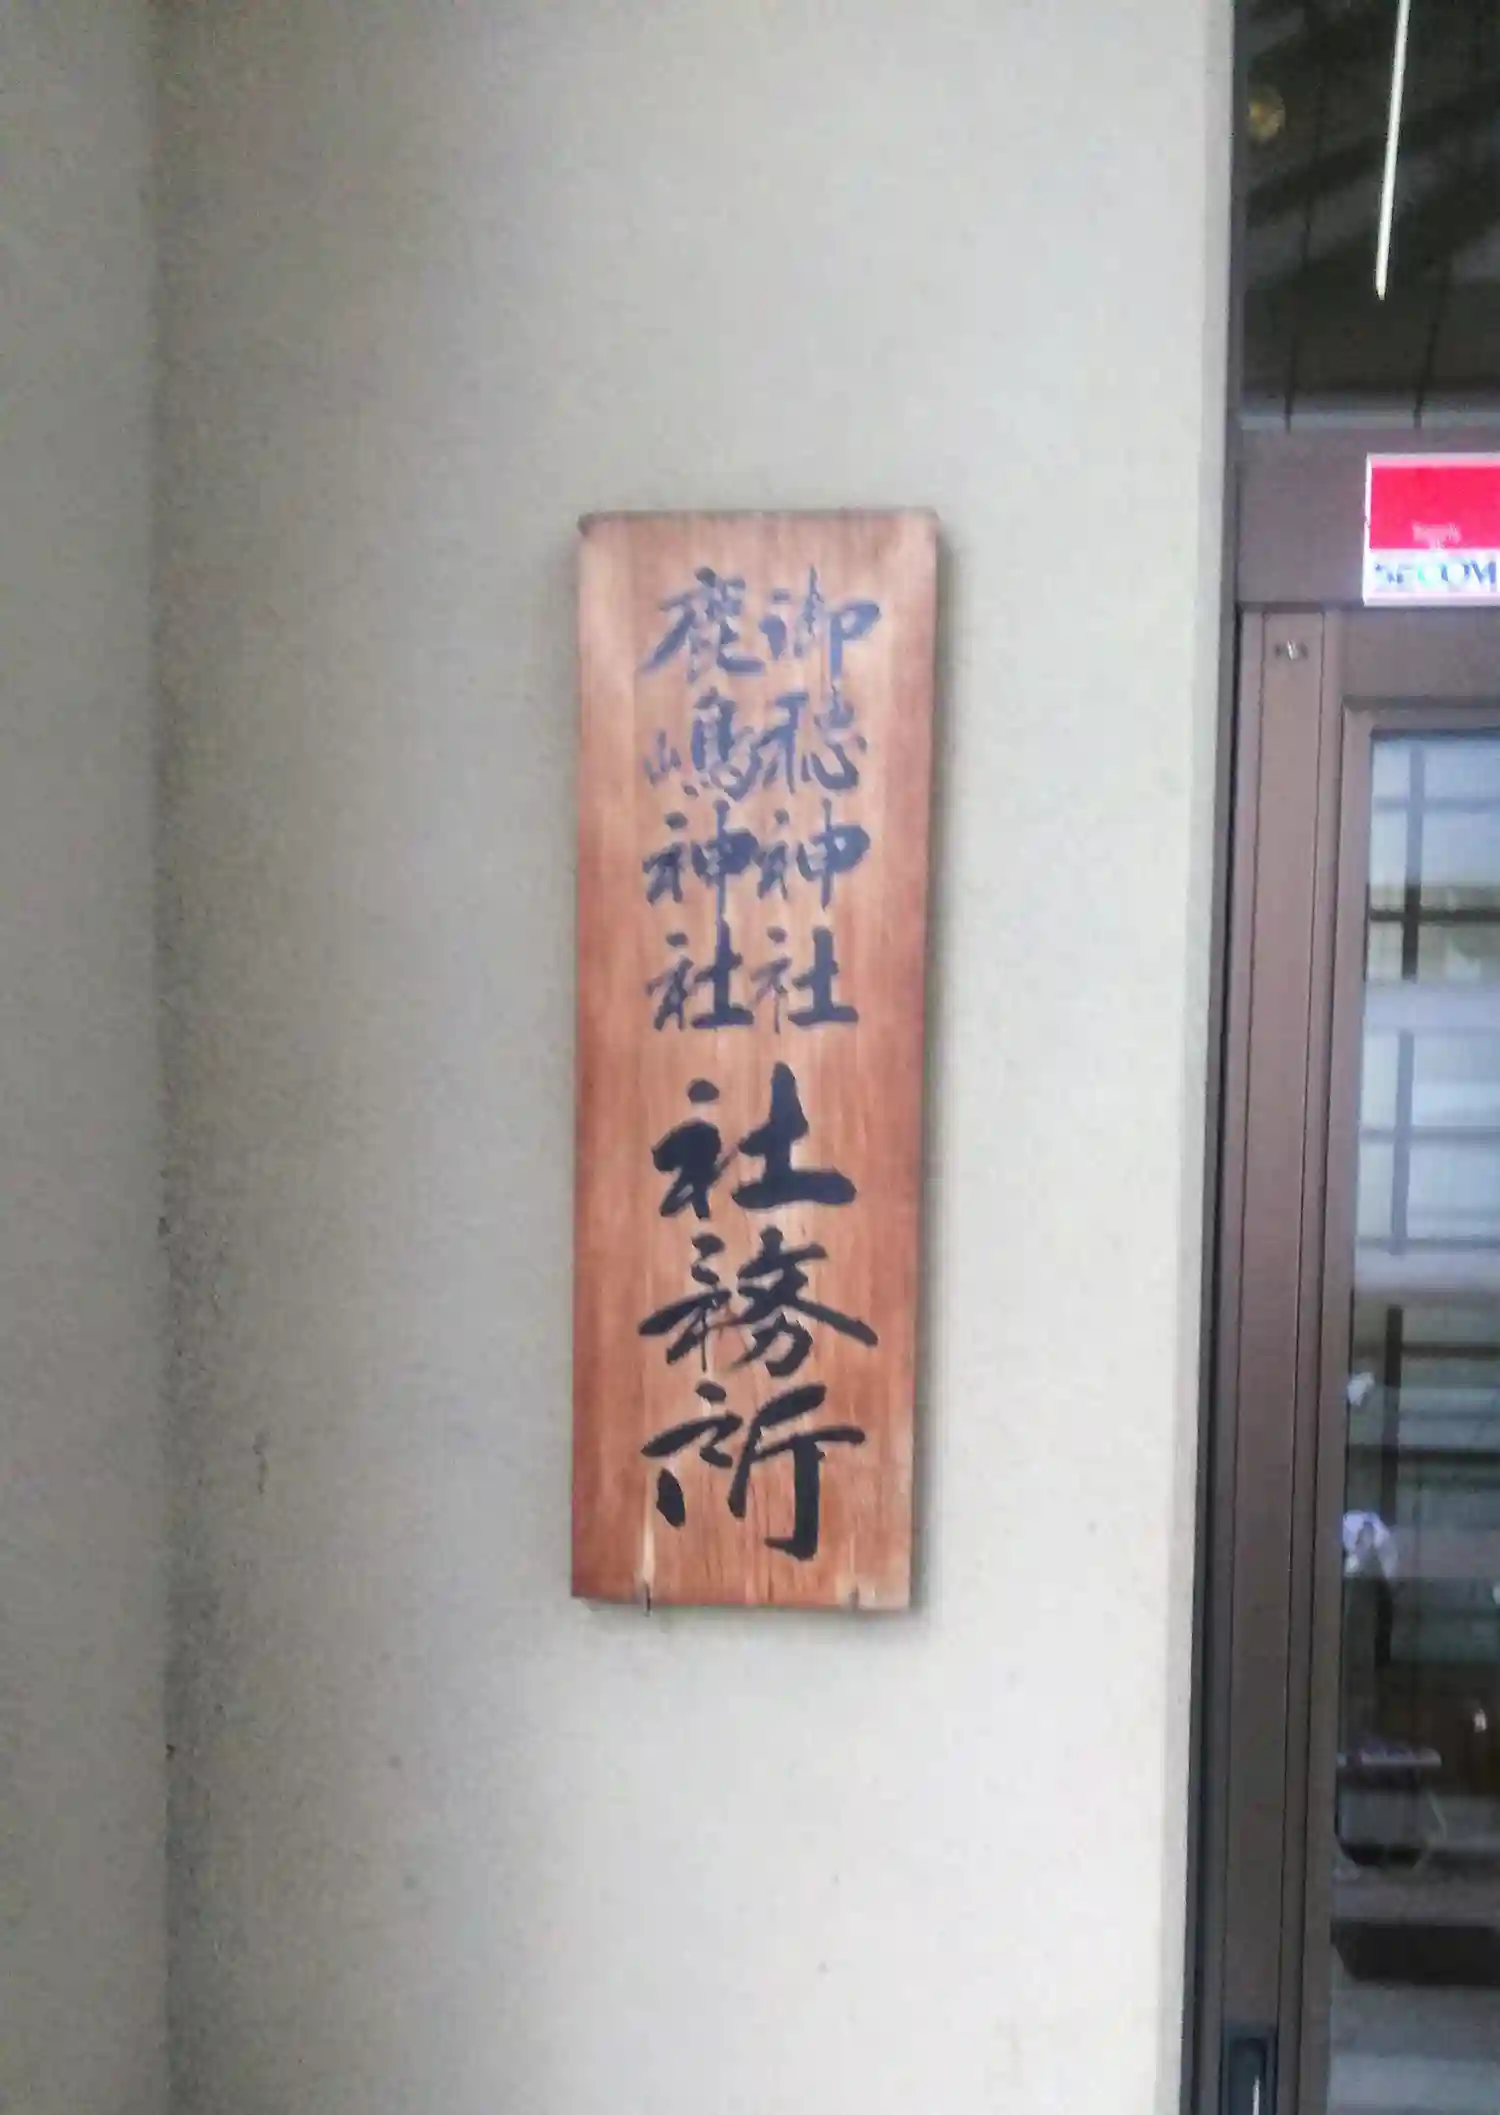 御穂神社
鹿嶋神社
社務所
SECOM